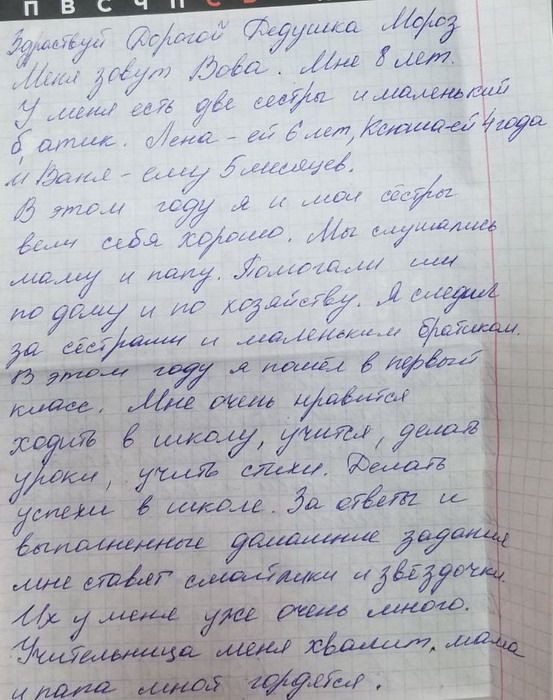 П В С Ч П С
Здраствуй Дорогой Дедушка Мороз
Меня зовут Вова. Мне 8 лет.
У меня есть две сестры и маленький
братик. Лена - ей 6 лет, Ксюша-ей 4 года
и Ваня - ему 5 месяцев.
В этом году я и мои сёстры
вели себя хорошо. Мы слушались
маму и папу. Помогали им
по дому и по хозяйству. Я следил
за сёстрами и маленьким братиком.
В этом году я пошёл в первый
класс. Мне очень нравится
ходить в школу, учится, делать
уроки, учить стихи. Делать
успехи в школе. За ответы и
выполненные домашние задания
мне ставят смайлики и звёздочки.
Их у меня уже очень много.
Учительница меня хвалит, мама
и папа мной гордятся.